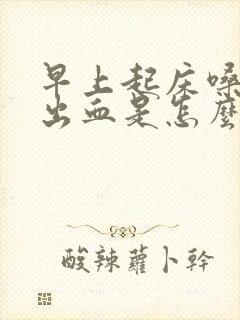 早上起床嗓
出血是怎麼
酸辣蘿卜幹